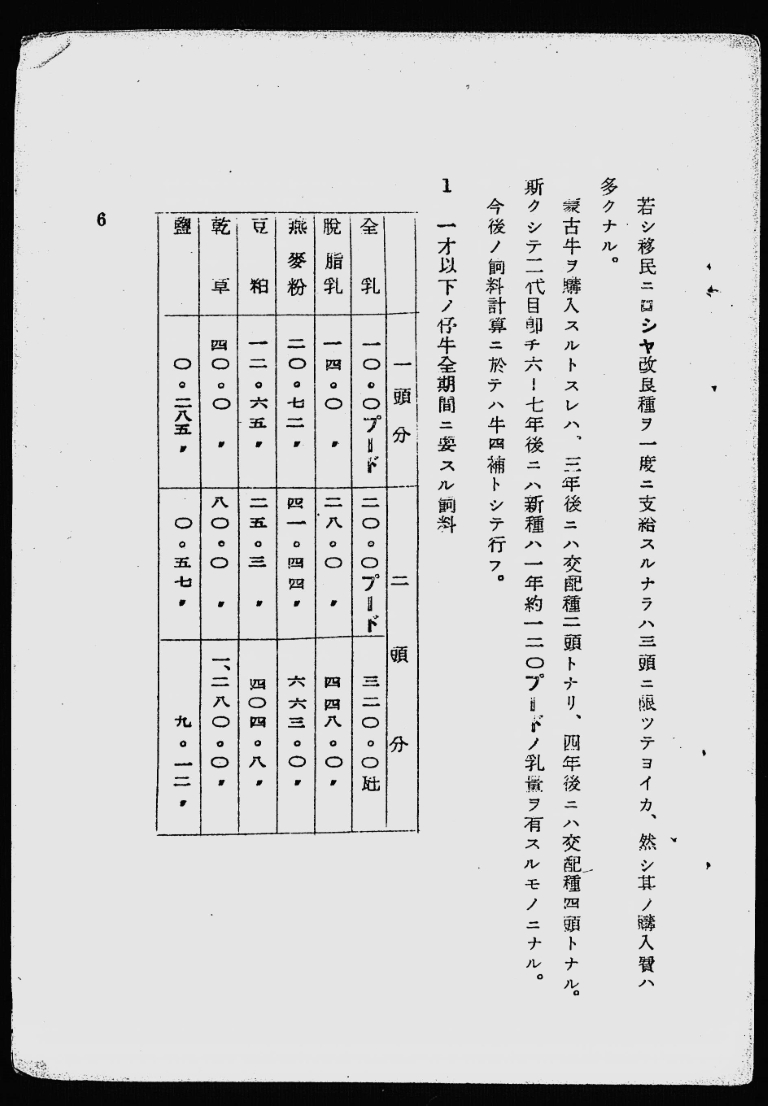 若シ移民ニロシヤ改良種ヲ一度ニ支給スルナラハ三頭ニ限ツテヨイカ、然シ其ノ購入費ハ
多クナル。
蒙古牛ヲ購入スルトスレハ、三年後ニハ交配種二頭トナリ、四年後ニハ交配種四頭トナル。
斯クシテ二代目卽チ六ー七年後ニハ新種ハ一年約一二〇プードノ乳量ヲ有スルモノニナル。
今後ノ飼料計算ニ於テハ牛四補トシテ行フ。
1 一才以下ノ仔牛全期間ニ要スル飼料
一頭分 二頭分
全乳 一〇。〇プード 二〇。〇プード 三二〇。〇瓩
脫脂乳 一四。〇〃 二八。〇〃 四四八。〇〃
燕麥粉 二〇。七二〃 四一。四四〃 六六三。〇〃
豆粕 一二。六五〃 二五。三〃 四〇四。八〃
乾草 四〇。〇〃 八〇。〇〃 一、二八〇。〇〃
鹽 〇。二八五〃 〇。五七〃 九。一二〃
6